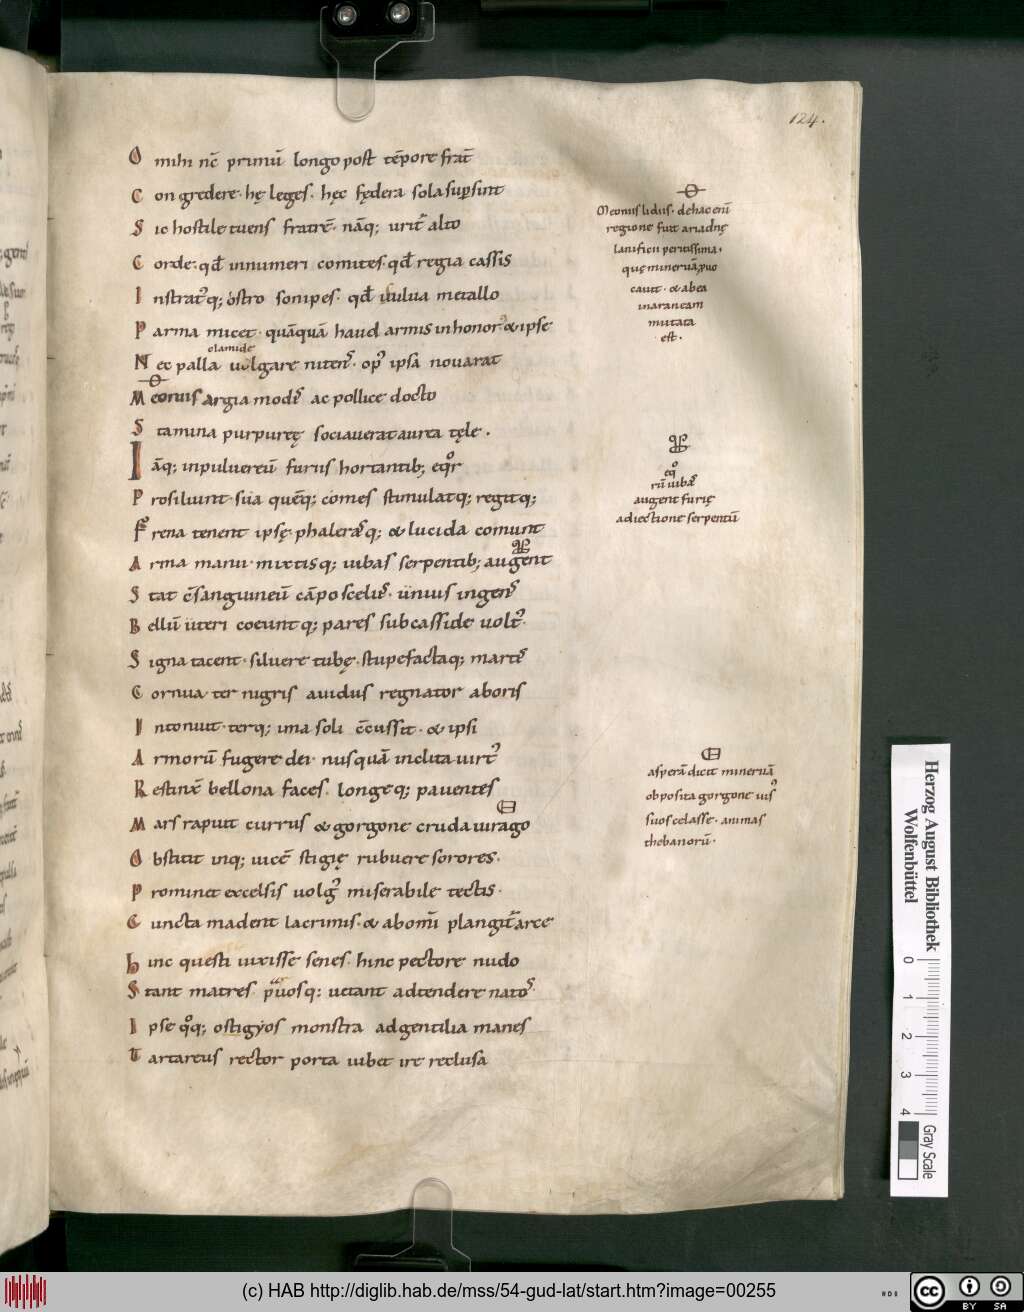 124.
O mihi nc̄ primū longo post tēpore frat̄
C on gredere · hę leges · hęc fędera sola supsunt
S ic hostile tuens fratrē · nāq; urit᷑ alto
C orde · qd̄ innumeri comites · qd̄ regia cassis
I nstrat᷒q; ostro sonipes · qd̄ uulua metallo
P arma micet · quāquā haud armis inhonor᷒ & ipse
clamide
N ec palla uulgare nitens · op᷒ ipsa nouarat
M eonis argia modis ac pollice docto
S tamina purpureę sociauerat aurea tęle .
I āq; inpulvereū furiis hortantib; eqᵒr
P rosiliunt · sua quēq; comes stimulatq; regitq;
F rena tenent ipsę · phalerasq; & lucida comunt
A rma manu · mixtisq; iubas serpentib; augent
S tat c̄sanguineū cāpo scelus · unius ingens
B ellū uteri coeuntq; pares sub casside uolt᷒ ·
S igna tacent · siluere tubę · stupefactaq; martis
C ornua · ter nigris auidus regnator aboris
I ntonuit · terq; ima soli c̄cussit · & ipsi
A rmorū fugere dei · nusquā inclita uirt᷒
R estinx̄ bellona faces · longeq; pauentes
M ars rapuit currus & gorgone cruda uirago
O bstitit inq; uicē stigię rubuere sorores ·
P rominet excelsis uolg᷒ miserabile tectis ·
C uncta madent lacrimis · & abom̄i plangit᷑ arce
h inc questi uixisse senes · hinc pectore nudo
S tant matres · puosq; uetant adtendere natos ·
I pse qᵒq; ostigyos monstra adgentilia manes
T artareus rector porta iubet ire reclusa
Meonius lidius · dehac enī
regione fuit ariadnę
lanificii peritissima ·
quę mineruā puo
cauit · & abea
inaraneam
mutata
est ·
eqᵒ
rū iubas
augent furię
adiectione serpentū
asperā dicit mineruā
obposita gorgone uis᷒
suos celasse · animas
thebanorū ·
Herzog August Bibliothek
Wolfenbüttel
0 1 2 3 4
Gray Scale
(c) HAB http://diglib.hab.de/mss/54-gud-lat/start.htm?image=00255
cc BY SA